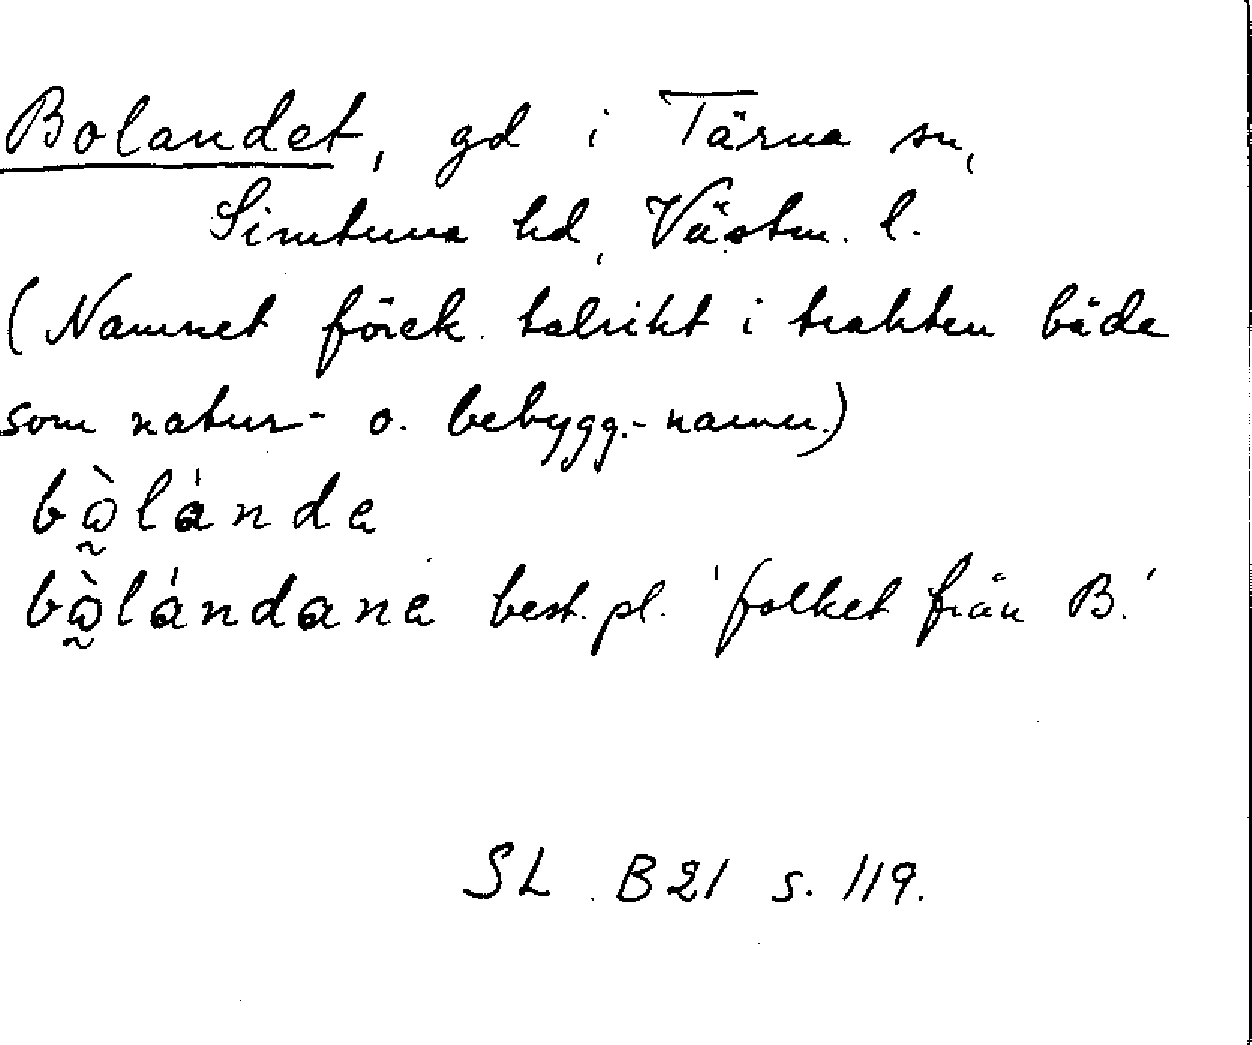 Bolandet, gd i Tärna sn,
Simtuna hd, Västm. l.
(Namnet förek. talrikt i trakten både
som natur- o. bebygg.-namn.)
bὼ̰lánda
bὼ̰lándana best. pl. 'folket från B.'
SL . B21 s. 119.